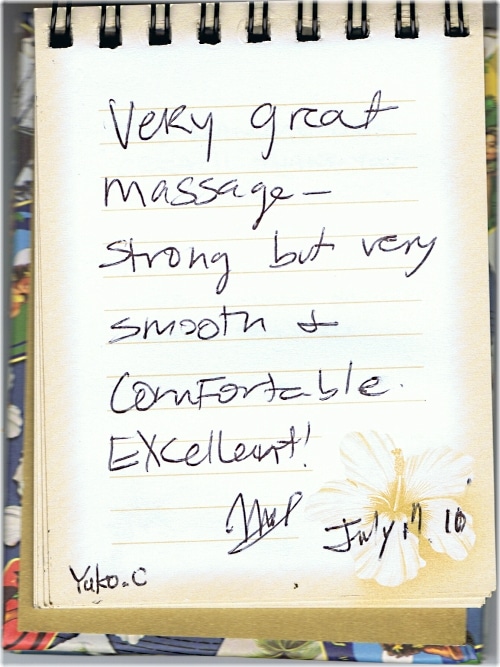 Very great
massage –
strong but very
smooth &
Comfortable.
EXcellent!
July 17. 10
Yuko.C